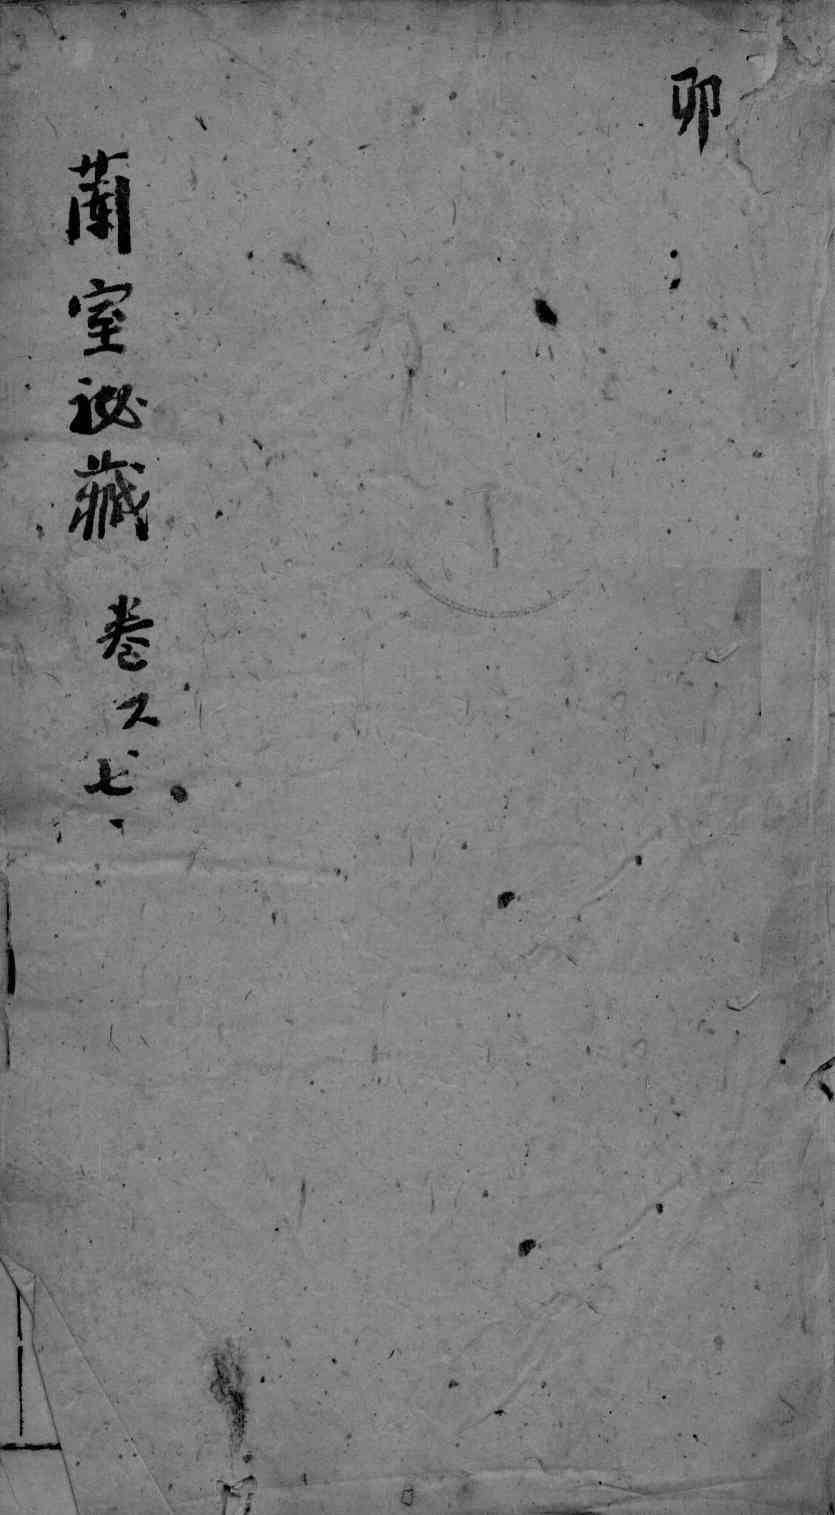 卯
蘭室祕藏 卷之七